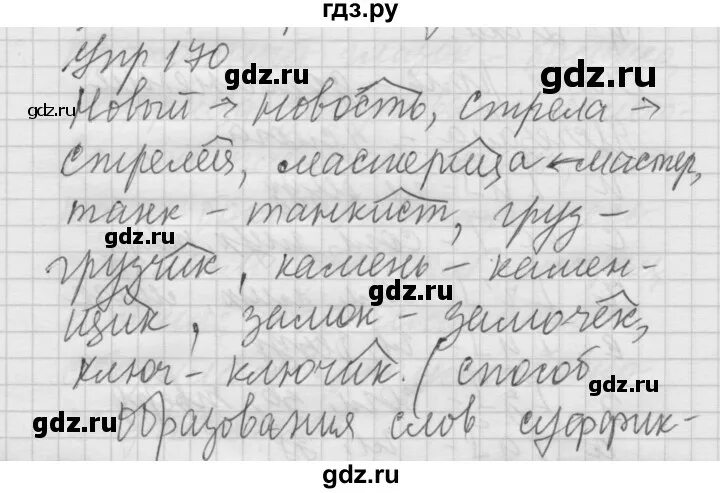 гдз.ру
Упр 170
gdz.ru gdz.ru
Новый → новость, стрела →
стрелец, мастерица ← мастер,
танк - танкист, груз -
gdz.ru
грузчик, камень - камен-
gdz.ru
щик, замок - замочек,
ключ - ключик. (способ
gdz.ru gdz.ru
образования слов суффик-
gdz.ru
gdz.ru